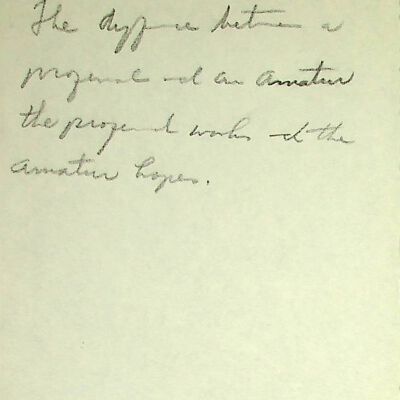 The difference between a
professional and an amatur
the professional works and the
amatur hopes.